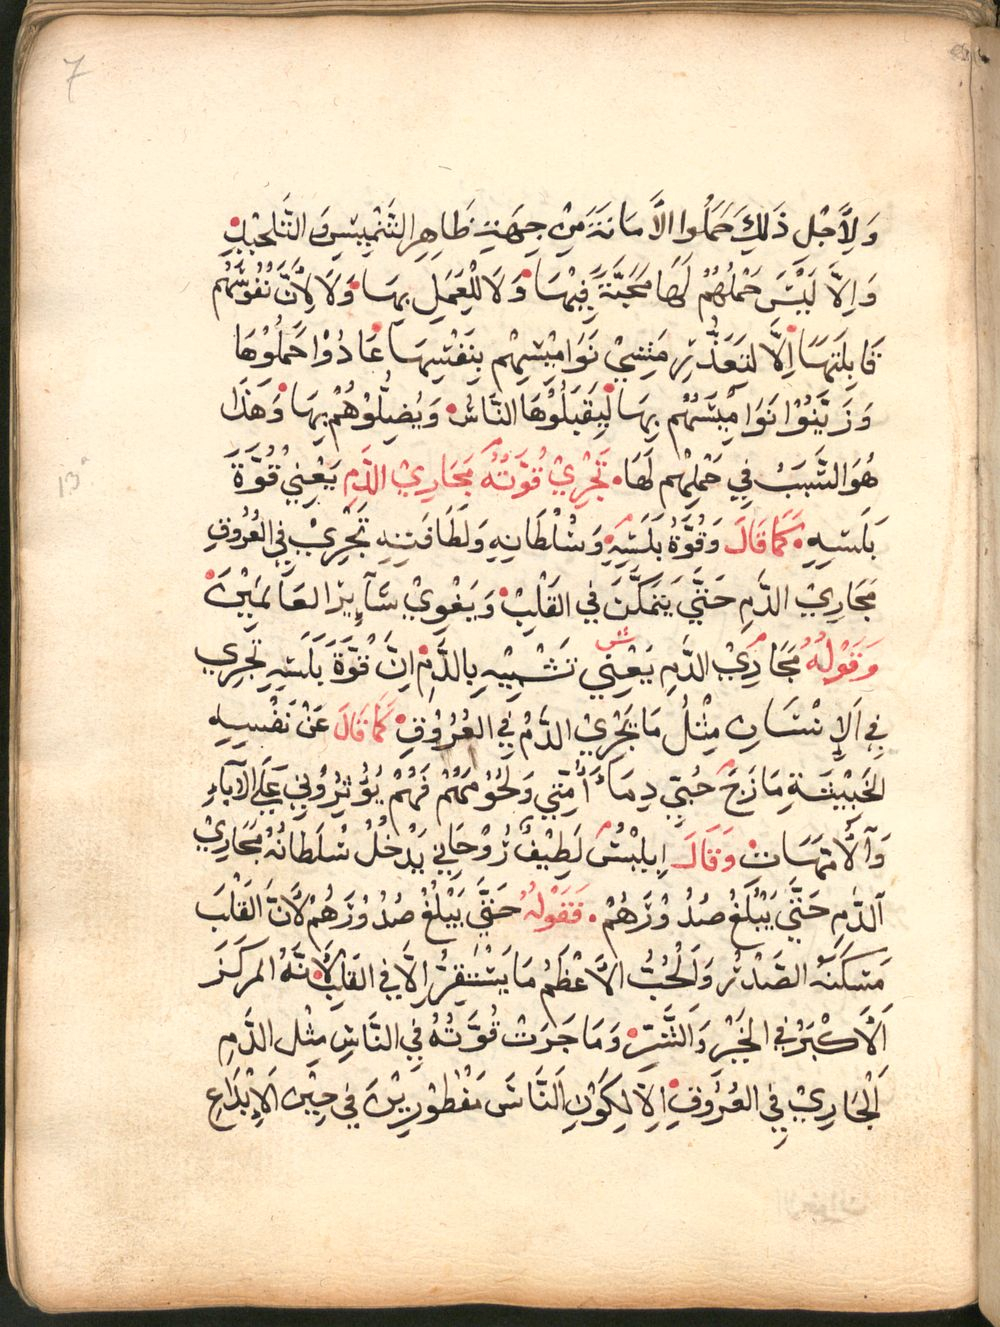 7
وَلِأَجْلِ ذَلِكَ حَمَلُوا الأَمَانَةَ مِنْ جِهَةِ ظَاهِرِ التَّنْمِيسِ وَالتَّلحِيكِ
وَاِلَّا لَيْسَ حَمْلُهُمْ لَهَا مَحَبَّةً فِيْهَا وَلَا لِلْعَمَلِ بِهَا وَلَا لِأَنَّ نُفُوسَهُم
قَابِلَتهَا اِلَّا لِتَعَذُّرِ مَشِيْ نَوَامِيْسِهِم بِنَفْسِهَا عَادُوْا حَمَلُوْهَا
وَزَيَّنُوْا نَوَامِيْسَهُم بِهَا لِيَقبَلُوْهَا النَّاسُ وَيُضِلُّوْهُمْ بِهَا وَهَذَا
هُوَ السَّبَبُ فِي حَمْلِهِم لَهَا تَجْرِيْ قُوَّتُهُ مَجَارِيْ الدَّمِ يَعْنِيْ قُوَّةَ
13
بَلَسِهِ كَمَا قَالَ وَقُوَّةُ بَلَسِهِ وَسُلْطَانِهِ وَلَطَافَتِهِ تَجْرِيْ فِي العُرُوقِ
مَجَارِيْ الدَّمِ حَتَّي يَتَمَكَّنَ فِي القَلْبِ وَيَغْوِيْ سَآيِرَ العَالَمِيْنَ
وَقَوْلُهُ مَجَارِيْ الدَّمِ يَعْنِي تَشْبِيْهِ بِالدَّمِ اِنَّ قُوَّةَ بَلَسِهِ تَجرِي
فِي اَلإِنْسَانِ مِثْلُ مَا يَجْرِيْ الدَّمُ فِي العُرُوقِ كَمَا قَالَ عَنْ نَفْسِهِ
الخَبِيْثَةِ مَازَجَ حُبِّي دِمَاءُ أُمَّتِي وَلُحُوْمَهُمْ فَهُمْ يُؤثِرُوْنِي عَلَى الآبَاءِ
وَاَلأُمَّهَاتِ وَقَالَ اِبلِيْسُ لَطِيْفٌ رُوْحَانِي يَدْخُلُ سُلطَانُهُ مَجَارِيْ
اَلدَّمِ حَتَّي يَبْلُغُ صُدُوْرَهُمْ فَقَوْلُهُ حَتَّي يَبْلُغُ صُدُوْرَهُمْ لأَنَّ القَلْبَ
مَسكَنَهُ الصَّدْرُ وَالْحُبُّ الأَعْظَمُ مَا يَسْتَقِرُّ اِلَّا فِي القَلْبِ لأَنَّهُ المَركَزَ
اَلأَكْبَرُ فِي الخَيْرِ وَالشَّرِّ وَمَا جَرَتْ قُوَّتُهُ فِي النَّاسِ مِثْلِ الدَّمِ
اَلْجَارِيْ فِي العُرُوقِ اِلا لِكَوْنِ النَّاسَ مَفْطُوْرِيْنَ فِي حِيْنِ اَلإِبْدَاعِ